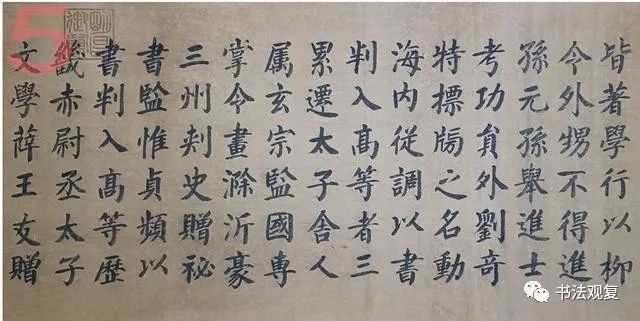 皆著學行以柳
令外甥不得進
孫元孫舉進士
考功貟外劉奇
特標牓之名動
海内從調以書
判入高等者三
累遷太子舍人
属玄宗監國專
掌令畫滁沂豪
三州刾史贈祕
書監惟貞頻以
書判入高等歷
畿赤尉丞太子
文學薛王友贈
5
书法观复